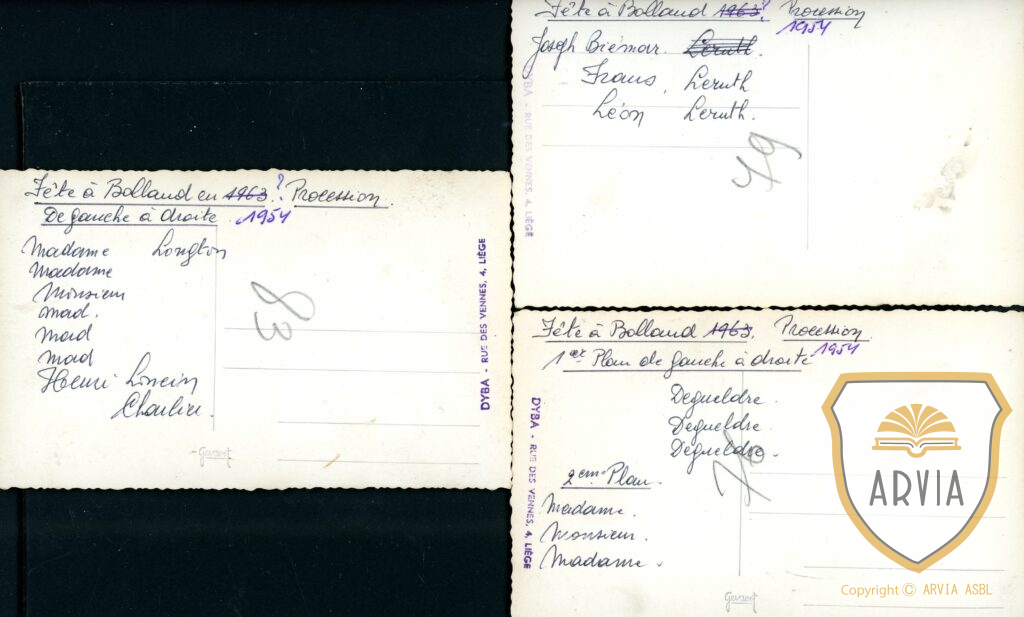 Fête à Bolland en 1963 ? Procession.
De gauche à droite 1954
Madame Longton
Madame
Monsieur
Mad.
Mad
Mad
Henri
Charlier.
83
DYBA - RUE DES VENNES, 4, LIÈGE
Gevaert
Fête à Bolland 1963 ? Procession
1954
Joseph Biémar. Leruth.
Frans, Leruth
Léon Leruth.
19
DYBA - RUE DES VENNES, 4, LIÈGE
Fête à Bolland 1963. Procession.
1er Plan de gauche à droite 1954
Degueldre.
Degueldre.
Degueldre.
2eme Plan.
Madame.
Monsieur.
Madame.
DYBA - RUE DES VENNES, 4, LIÈGE
Gevaert
ARVIA
Copyright © ARVIA ASBL